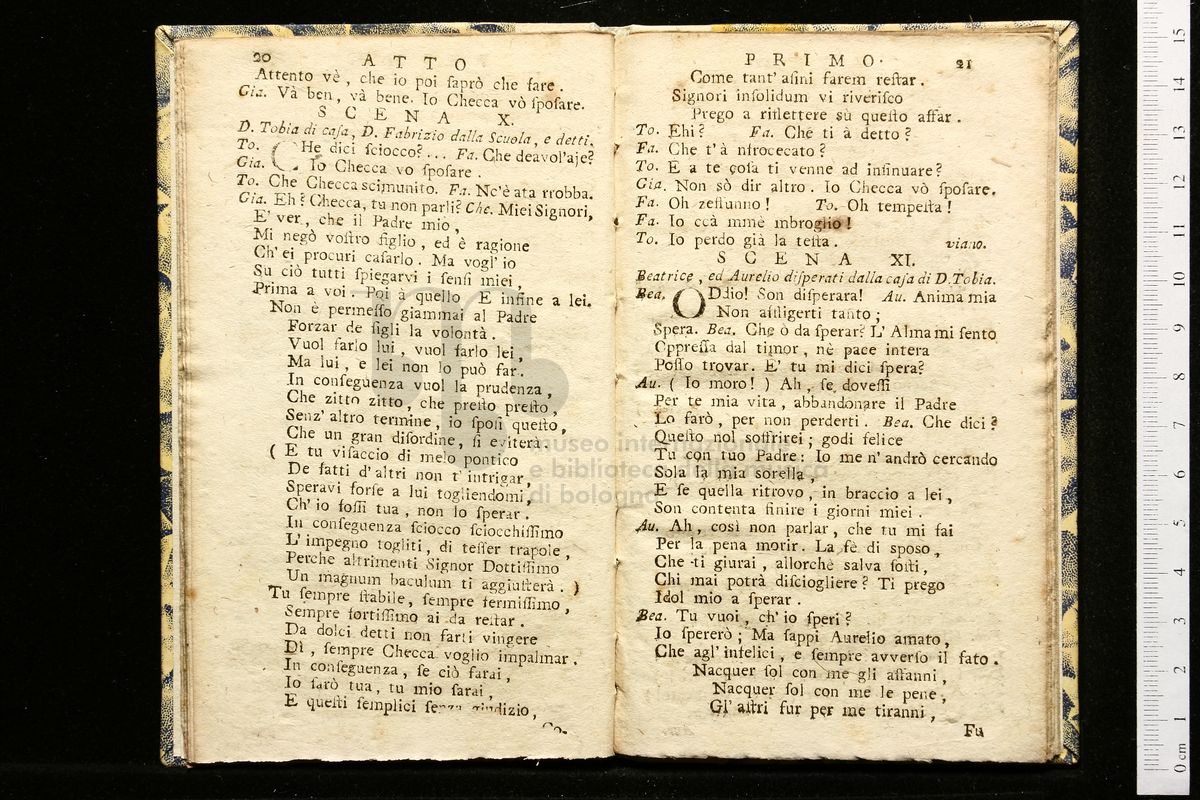 20 ATTO
Attento vè, che io poi saprò che fare.
Gia. Và ben, và bene. Io Checca vò sposare.
SCENA X.
D. Tobia di casa, D. Fabrizio dalla Scuola, e detti.
To. CHe dici sciocco?... Fa. Che deavol'aje?
Gia. Io Checca vo sposare.
To. Che Checca scimunito. Fa. Nc'è ata rrobba.
Gia. Eh? Checca, tu non parli? Che. Miei Signori,
E' ver, che il Padre mio,
Mi negò vostro figlio, ed è ragione
Ch' ei procuri casarlo. Mà vogl' io
Su ciò tutti spiegarvi i sensi miei,
Prima a voi. Poi à quello E infine a lei.
Non è permesso giammai al Padre
Forzar de figli la volontà.
Vuol farlo lui, vuol farlo lei,
Ma lui, e lei non lo può far.
In conseguenza vuol la prudenza,
Che zitto zitto, che presto presto,
Senz' altro termine, io sposi questo,
Che un gran disordine, si eviterà.
( E tu visaccio di melo pontico
De fatti d' altri non t' intrigar,
Speravi forse a lui togliendomi,
Ch' io fossi tua, non lo sperar.
In conseguenza sciocco sciocchissimo
L' impegno togliti, di tesser trapole,
Perche altrimenti Signor Dottissimo
Un magnum baculum ti aggiusterà. )
Tu sempre stabile, sempre fermissimo,
Sempre fortissimo ai da restar.
Da dolci detti non farti vingere
Dì, sempre Checca voglio impalmar.
In conseguenza, se ciò farai,
Io sarò tua, tu mio sarai,
E questi semplici senza giudizio,
Co-
PRIMO. 21
Come tant' asini farem restar.
Signori insolidum vi riverisco
Prego a riflettere sù questo affar.
To. Ehi? Fa. Che ti à detto?
Fa. Che t'à nfrocecato?
To. E a te cosa ti venne ad insinuare?
Gia. Non sò dir altro. Io Checca vò sposare.
Fa. Oh zeffunno! To. Oh tempesta!
Fa. Io ccà mmè mbroglio!
To. Io perdo già la testa. viano.
SCENA XI.
Beatrice, ed Aurelio disperati dalla casa di D. Tobia.
Bea. ODdio! Son disperara! Au. Anima mia
Non affligerti tanto;
Spera. Bea. Che ò da sperar? L' Alma mi sento
Oppressa dal timor, nè pace intera
Posso trovar. E' tu mi dici spera?
Au. ( Io moro! ) Ah, se dovessi
Per te mia vita, abbandonare il Padre
Lo farò, per non perderti. Bea. Che dici?
Questo nol soffrirei; godi felice
Tu con tuo Padre: Io me n' andrò cercando
Sola la mia sorella,
E se quella ritrovo, in braccio a lei,
Son contenta finire i giorni miei.
Au. Ah, così non parlar, che tu mi fai
Per la pena morir. La fè di sposo,
Che ti giurai, allorchè salva fosti,
Chi mai potrà disciogliere? Ti prego
Idol mio a sperar.
Bea. Tu vuoi, ch' io speri?
Io spererò; Ma sappi Aurelio amato,
Che agl' infelici, e sempre avverso il fato.
Nacquer sol con me gli affanni,
Nacquer sol con me le pene,
Gl' astri fur per me tiranni,
Fu
museo internazionale
e biblioteca della musica
di bologna
0 cm 1 2 3 4 5 6 7 8 9 10 11 12 13 14 15